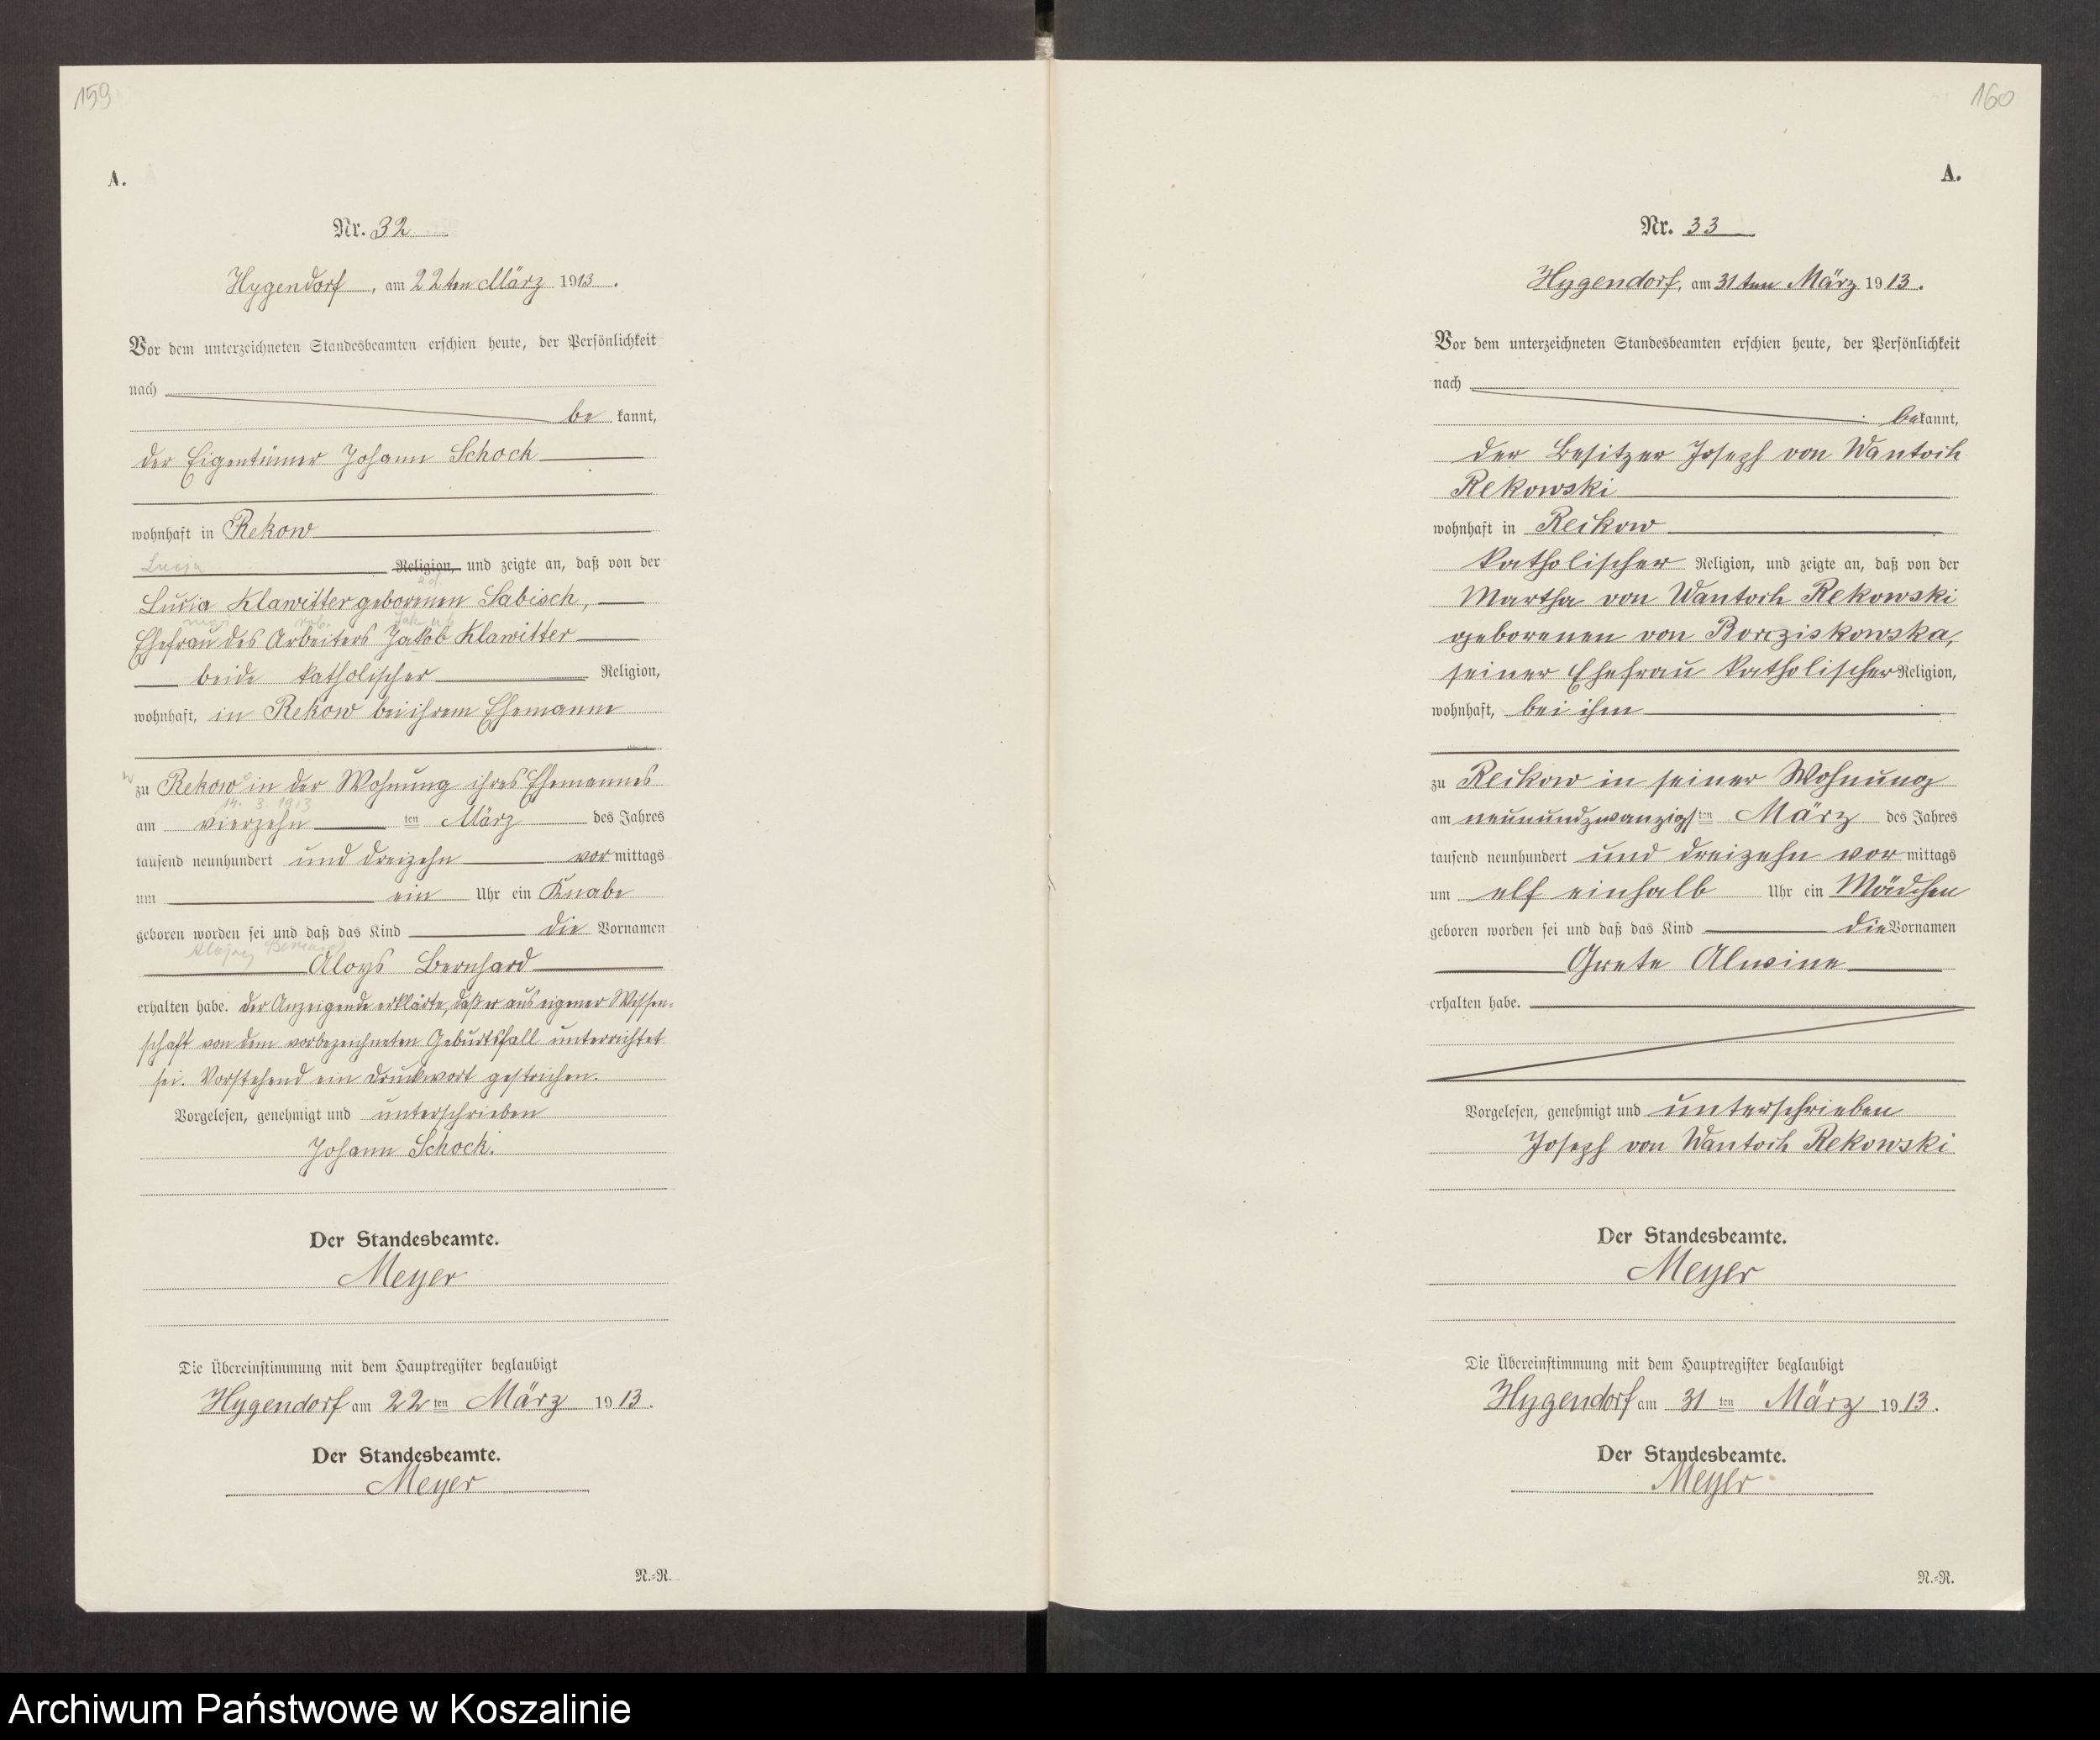 159
A.
Nr. 32
Hygendorf, am 22ten März 1913.
Vor dem unterzeichneten Standesbeamten erschien heute, der Persönlichkeit
nach
be kannt,
der Eigentümer Johann Schock
wohnhaft in Rekow
Lucja
Religion, und zeigte an, daß von der
Lucia Klawitter geborenen Sabisch,
Ehefrau des Arbeiters Jakob Klawitter
beide katholischer Religion,
wohnhaft, in Rekow bei ihrem Ehemanne
zu Rekow in der Wohnung ihres Ehemannes
14. 3. 1913
am vierzehn ten März des Jahres
tausend neunhundert und dreizehn vor mittags
um ein Uhr ein Knabe
geboren worden sei und daß das Kind die Vornamen
Alojzy Bernard
Aloys Bernhard
erhalten habe. Der Anzeigende erklärte, daß er aus eigener Wissen-
schaft von dem vorbezeichneten Geburtsfall unterrichtet
sei. Vorstehend ein Druckwort gestrichen.
Vorgelesen, genehmigt und unterschrieben
Johann Schock.
Der Standesbeamte.
Meyer
Die Übereinstimmung mit dem Hauptregister beglaubigt
Hygendorf am 22 ten März 1913.
Der Standesbeamte.
Meyer
N.-R.
160
A.
Nr. 33
Hygendorf, am 31ten März 1913.
Vor dem unterzeichneten Standesbeamten erschien heute, der Persönlichkeit
nach
bekannt,
der Besitzer Joseph von Wantoch
Rekowski
wohnhaft in Reckow
katholischer Religion, und zeigte an, daß von der
Martha von Wantoch Rekowski
geborenen von Borcziskowska,
seiner Ehefrau katholischer Religion,
wohnhaft, bei ihm
zu Reckow in seiner Wohnung
am neunundzwanzigsten März des Jahres
tausend neunhundert und dreizehn vor mittags
um elf einhalb Uhr ein Mädchen
geboren worden sei und daß das Kind die Vornamen
Grete Alwine
erhalten habe.
Vorgelesen, genehmigt und unterschrieben
Joseph von Wantoch Rekowski
Der Standesbeamte.
Meyer
Die Übereinstimmung mit dem Hauptregister beglaubigt
Hygendorf am 31 ten März 1913.
Der Standesbeamte.
Meyer
N.-R.
Archiwum Państwowe w Koszalinie